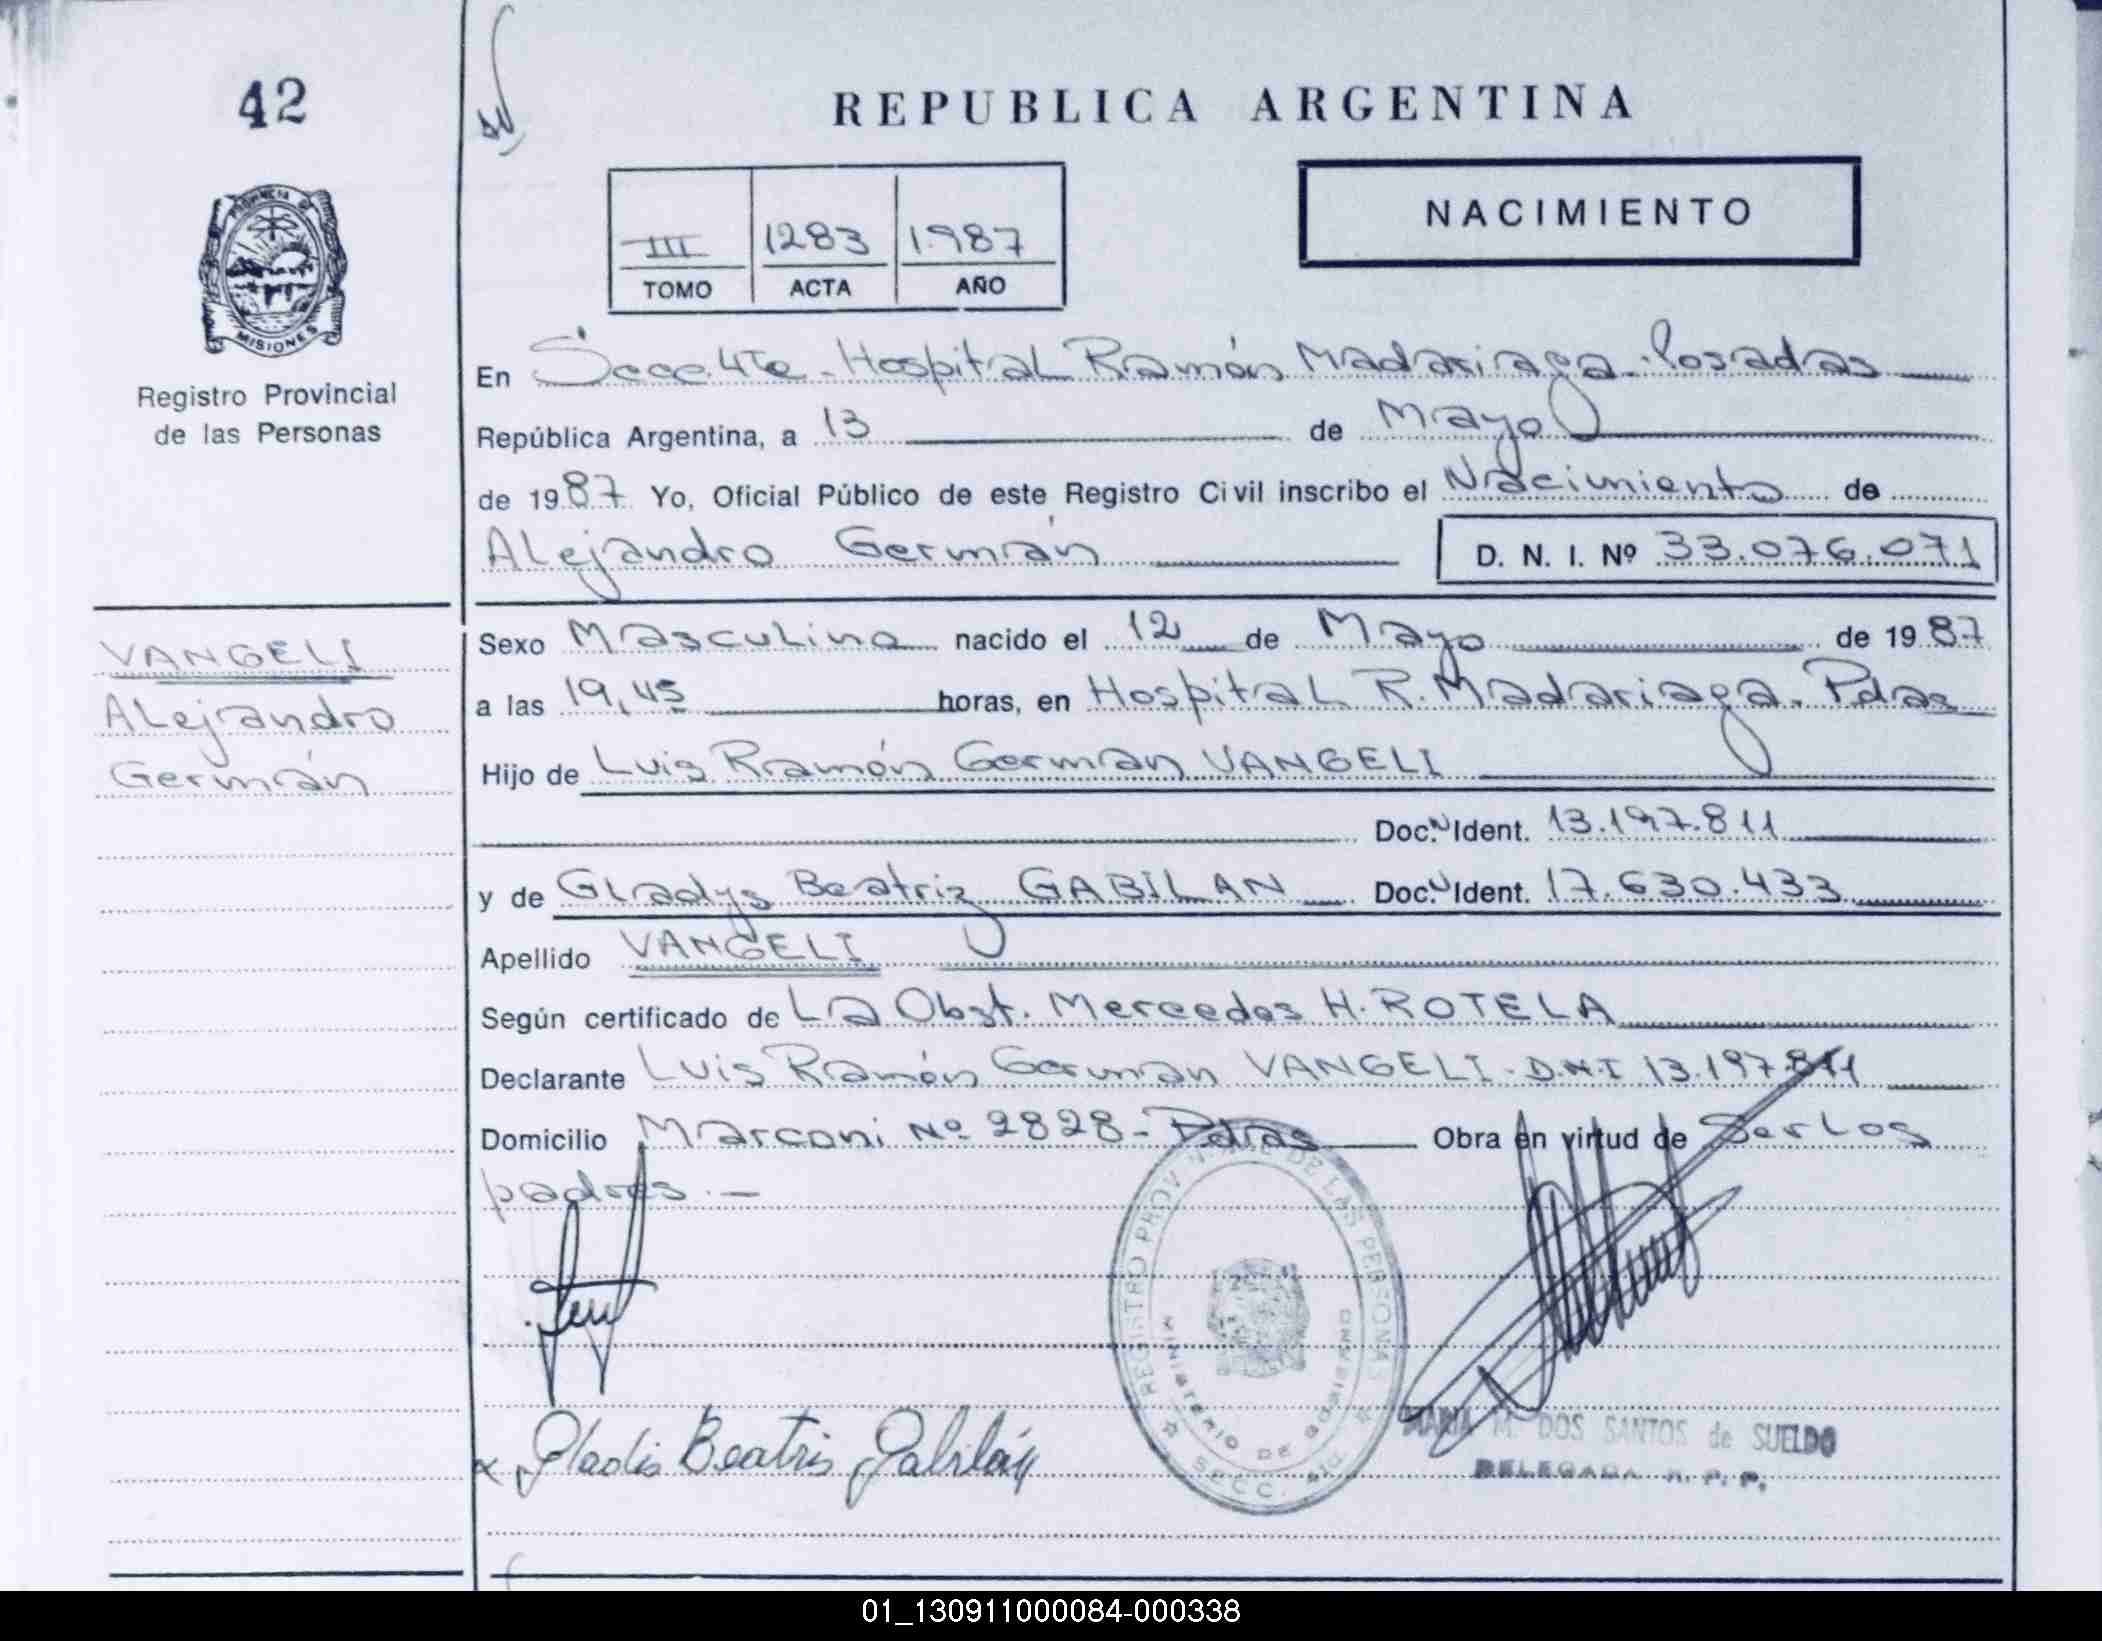 42
REPUBLICA ARGENTINA
PROVINCIA DE
MISIONES
Registro Provincial
de las Personas
III 1283 1987
TOMO ACTA AÑO
NACIMIENTO
En Secc. 4ta - Hospital Ramón Madariaga - Posadas
República Argentina, a 13 de Mayo
de 1987 Yo, Oficial Público de este Registro Civil inscribo el Nacimiento de
Alejandro Germán
D. N. I. Nº 33.076.071
VANGELI
Alejandro
Germán
Sexo Masculino nacido el 12 de Mayo de 1987
a las 19,45 horas, en Hospital R. Madariaga. Pdas
Hijo de Luis Ramón German VANGELI
Doc. Ident. 13.197.811
y de Gladys Beatriz GABILAN Doc. Ident. 17.630.433
Apellido VANGELI
Según certificado de La Obst. Mercedes H. ROTELA
Declarante Luis Ramón German VANGELI - D.N.I 13.197.811
Domicilio Marconi Nº 2828 - Pdas Obra en virtud de Ser los
padres. —
REGISTRO PROVINCIAL DE LAS PERSONAS
MINISTERIO DE GOBIERNO
SECC. 4ta
Gladis Beatris Gabilán
MARIA M. DOS SANTOS de SUELDO
DELEGADA R. P. P.
01_130911000084-000338